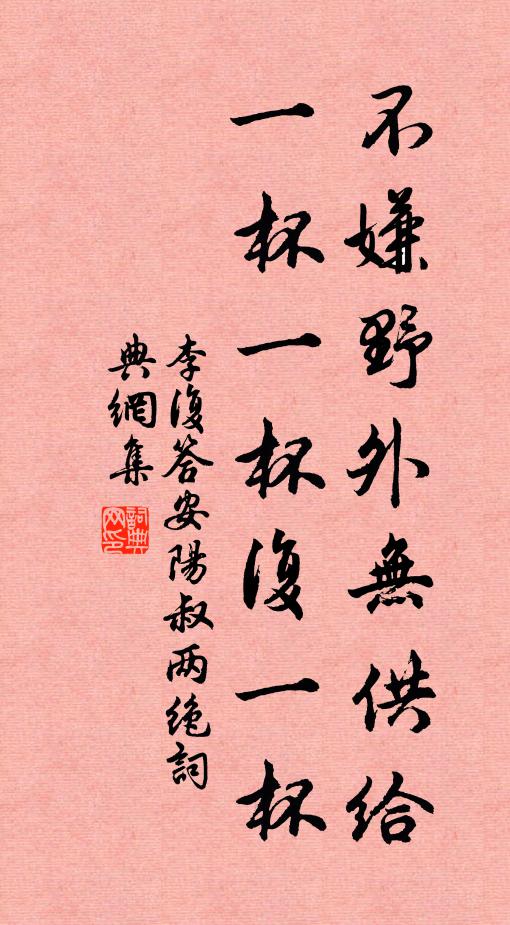 不嫌野外無供给
一杯一杯復一杯
李復答安陽叔两绝詞
典網集
詞典网印